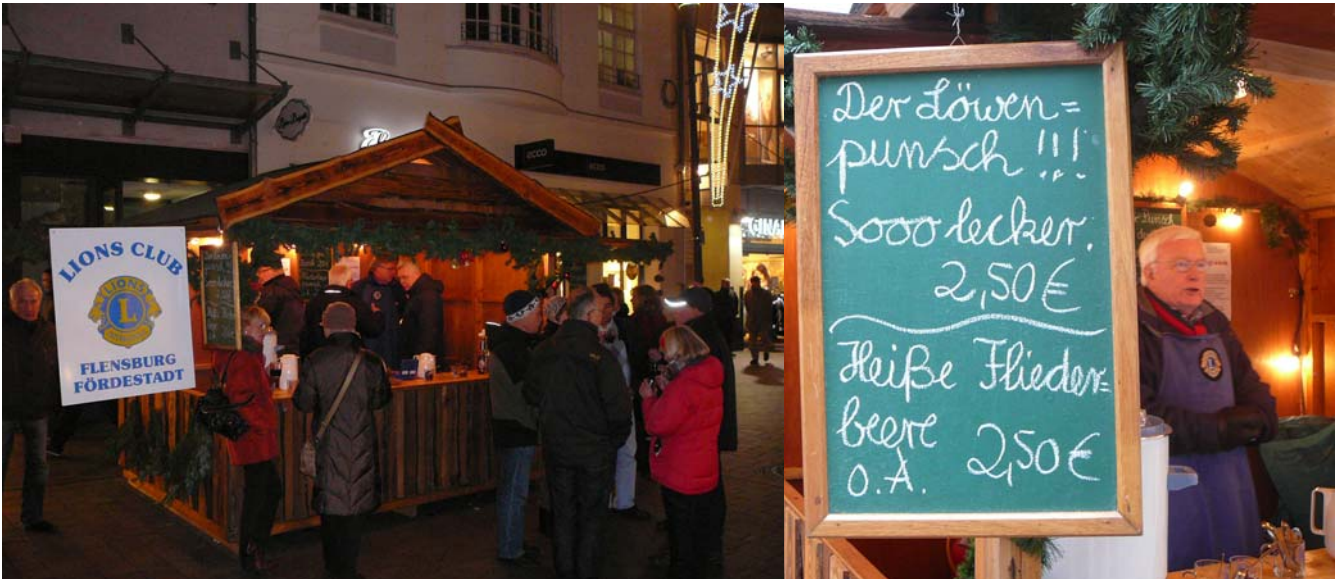 LIONS CLUB
LIONS
L
FLENSBURG
FÖRDESTADT
ecco
Der Löwen=
punsch !!!
Sooo lecker.
2,50 €
Heiße Flieder=
beere
2,50 €
o.A.